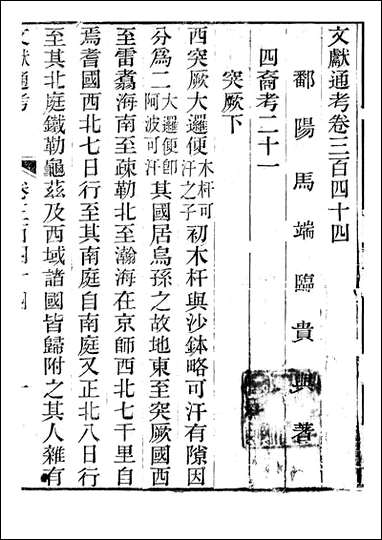 文獻通考卷三百四十四
鄱陽馬端臨貴與著
四裔考二十一
突厥下
西突厥大邏便木杆可汗之子初木杆與沙鉢略可汗有隙因
分爲二大邏便卽阿波可汗其國居烏孫之故地東至突厥國西
至雷翥海南至疎勒北至瀚海在京師西北七千里自
焉耆國西北七日行至其南庭自南庭又正北八日行
至其北庭鐵勒龜茲及西域諸國皆歸附之其人雜有
文獻通考
卷三百四十四
一